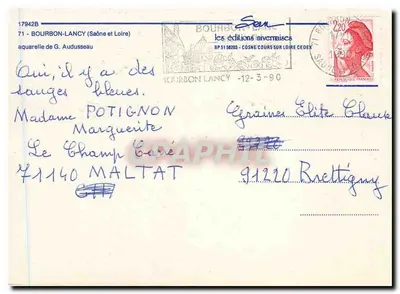 17942B
71 - BOURBON-LANCY (Saône et Loire)
aquarelle de G. Audusseau
les éditions nivernaises
BP 51 58203 - COSNE COURS SUR LOIRE CEDEX
BOURBON-LANCY
BOURBON LANCY -12-3-90
2,20
Oui, il y a des
sauges bleues.
Madame POTIGNON
Marguerite
Le Champ Carré
71140 MALTAT
Graines Elite Clause
91220 Brettigny